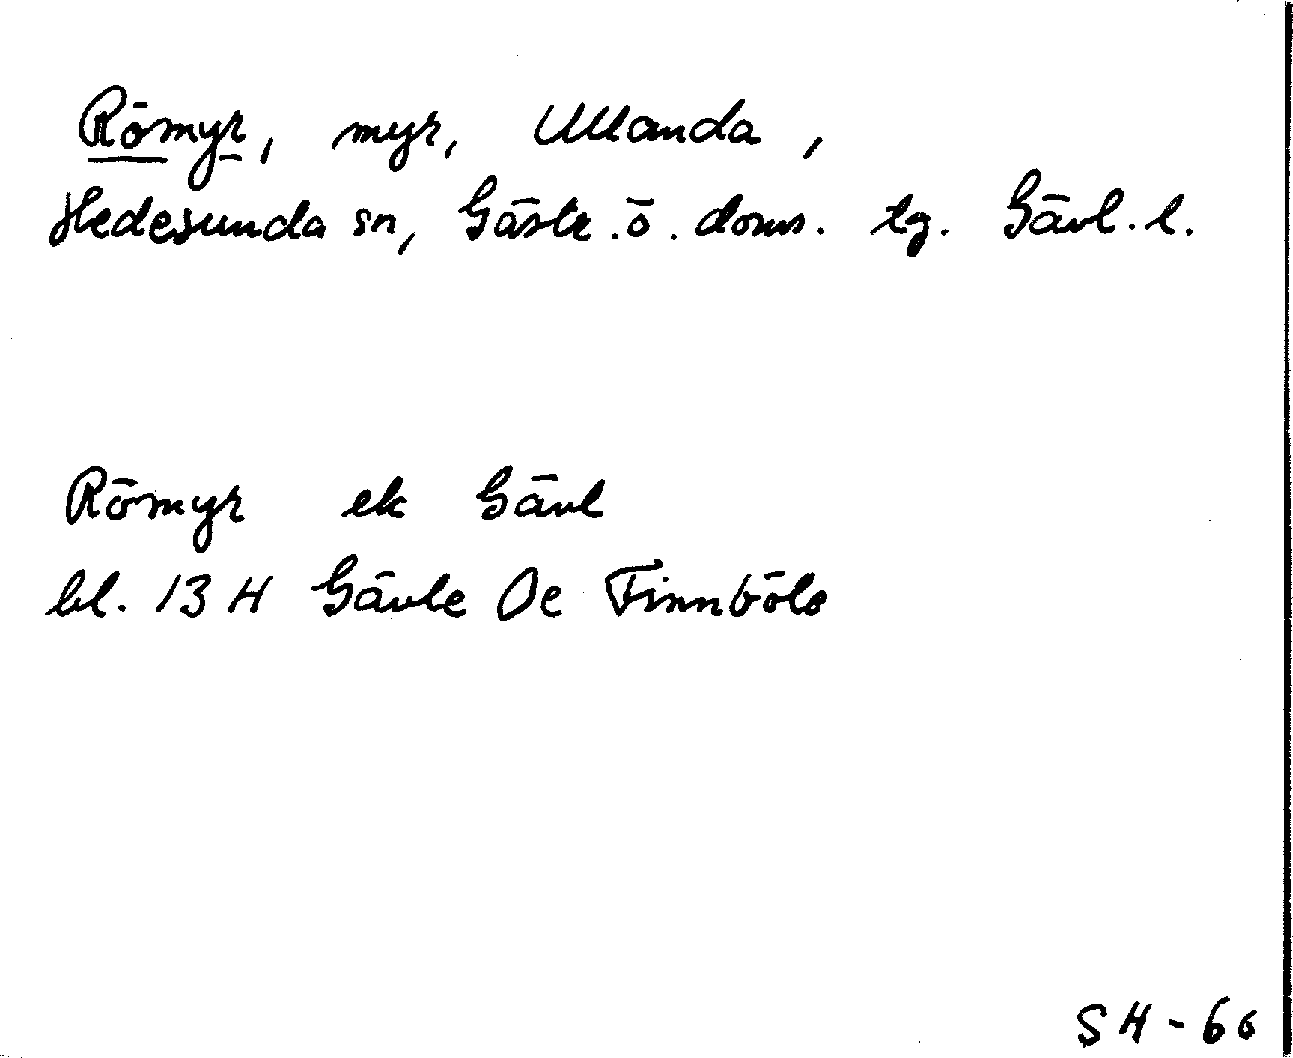 Römyr, myr, Ullanda,
Hedesunda sn, Gästr. ö. doms. tg. Gävl. l.
Römyr ek Gävl
bl. 13 H Gävle 0e Finnböle
SH-66